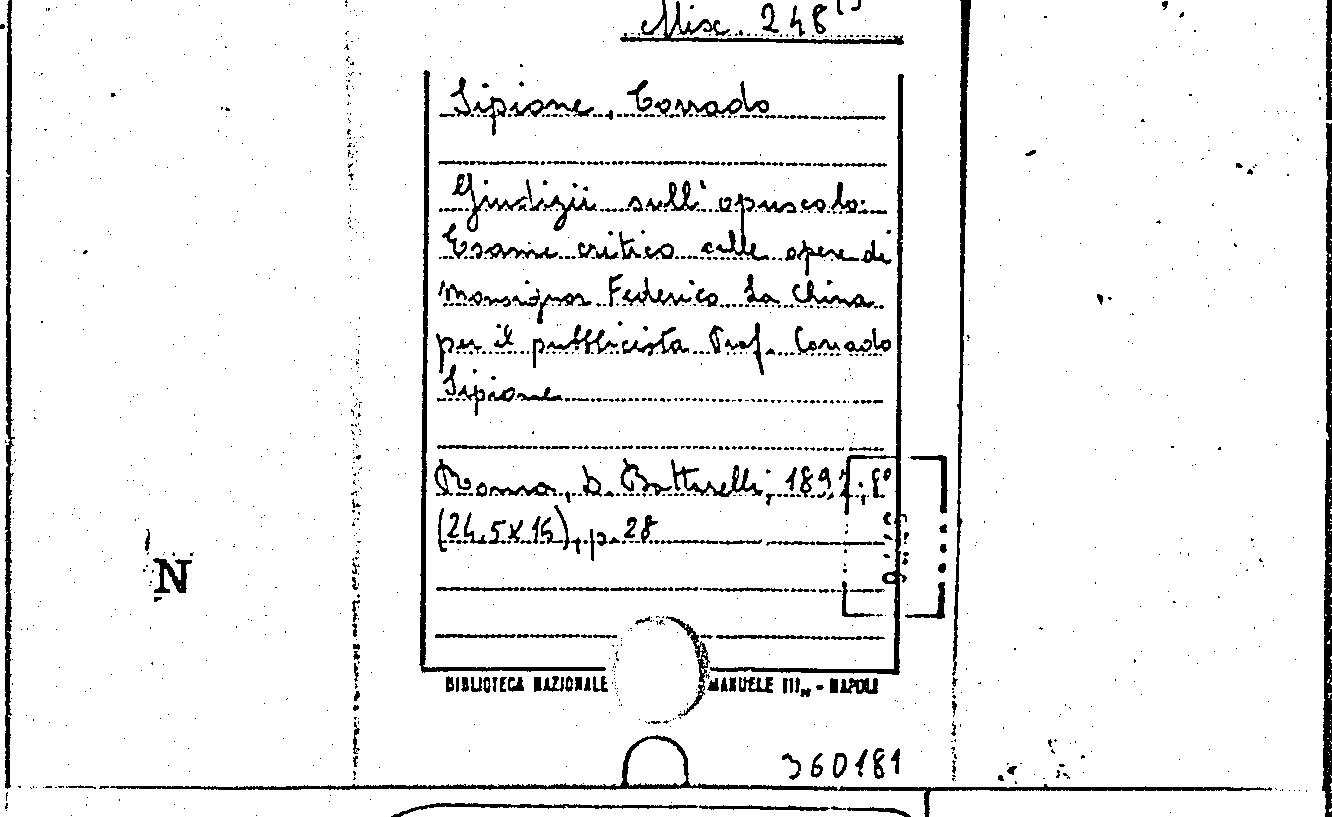 Misc. 248
Sipione, Corrado
Giudizii sull'opuscolo:
Esame critico sulle opere di
Monsignor Federico La China
per il pubblicista Prof. Corrado
Sipione
Roma, D. Battarelli, 189 ; 8°
(24,5x16), p. 28
N
BIBLIOTECA NAZIONALE MANUELE III„ - NAPOLI
360181